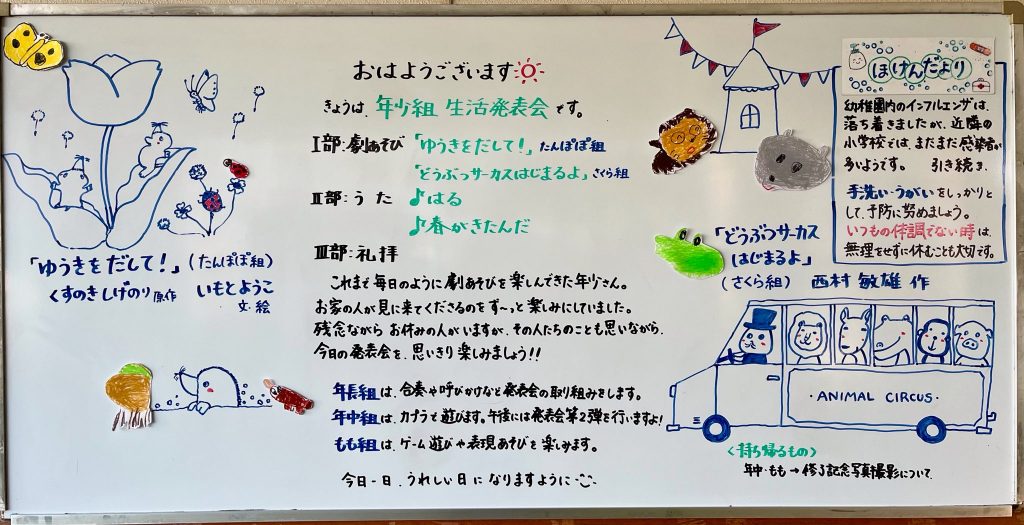 おはようございます
きょうは、年少組 生活発表会です。
Ⅰ部:劇あそび「ゆうきをだして!」たんぽぽ組
「どうぶつサーカスはじまるよ」さくら組
Ⅱ部:うた ♪はる
♪春がきたんだ
Ⅲ部:礼拝
これまで毎日のように劇あそびを楽しんできた年少さん。
お家の人が見に来てくださるのをず〜っと楽しみにしていました。
残念ながらお休みの人がいますが、その人たちのことも思いながら、
今日の発表会を、思いきり楽しみましょう!!
年長組は、合奏や呼びかけなど発表会の取り組みをします。
年中組は、カプラで遊びます。午後には発表会第2弾を行いますよ!
もも組は、ゲーム遊びや表現あそびを楽しみます。
今日一日、うれしい日になりますように
「ゆうきをだして!」(たんぽぽ組)
くすのきしげのり 原作 いもとようこ
文・絵
ほけんだより
幼稚園内のインフルエンザは、
落ち着きましたが、近隣の
小学校では、まだまだ感染者が
多いようです。 引き続き、
手洗い・うがいをしっかりと
して、予防に努めましょう。
いつもの体調でない時は、
無理をせずに休むことも大切です。
「どうぶつサーカス
はじまるよ」
(さくら組) 西村敏雄 作
・ANIMAL CIRCUS・
<持ち帰るもの>
年中・もも→修了記念写真撮影について